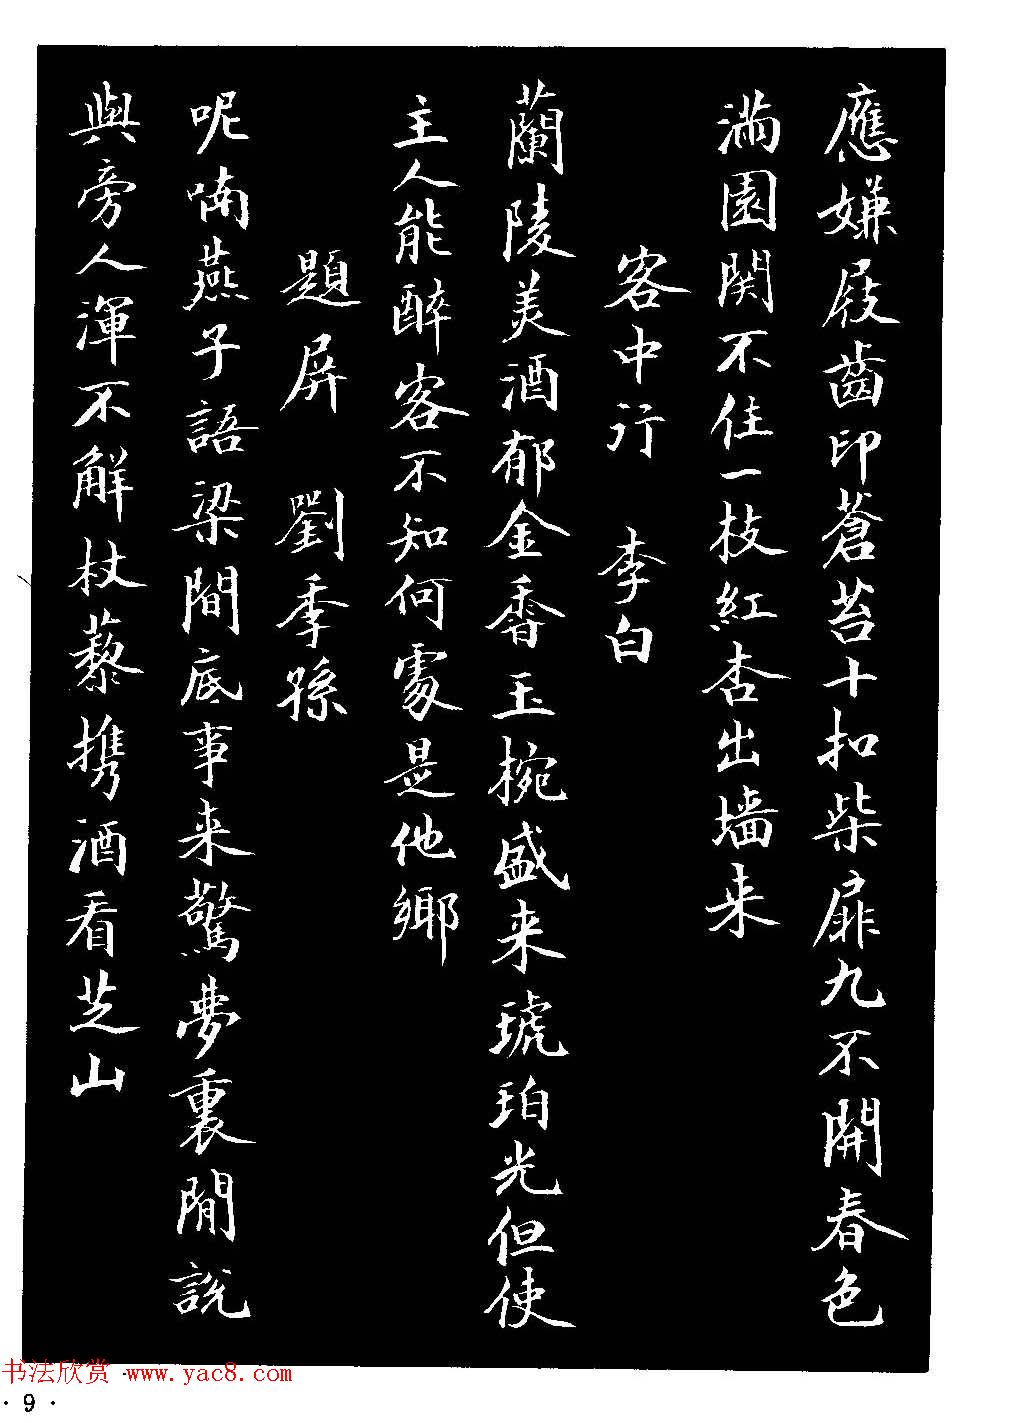 應嫌屐齒印蒼苔十扣柴扉九不開春色
滿園関不住一枝紅杏出墙来
客中行 李白
蘭陵美酒郁金香玉椀盛来琥珀光但使
主人能醉客不知何處是他鄉
題屏 劉季孫
呢喃燕子語梁間底事来驚夢裏閒說
與旁人渾不解杖藜携酒看芝山
书法欣赏 www.yac8.com
· 9 ·